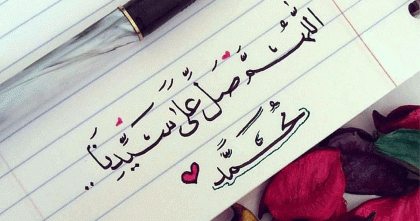 اللهُمَّ صَلِّ عَلَى سَيِّدِنَا..
مُحَمَّد